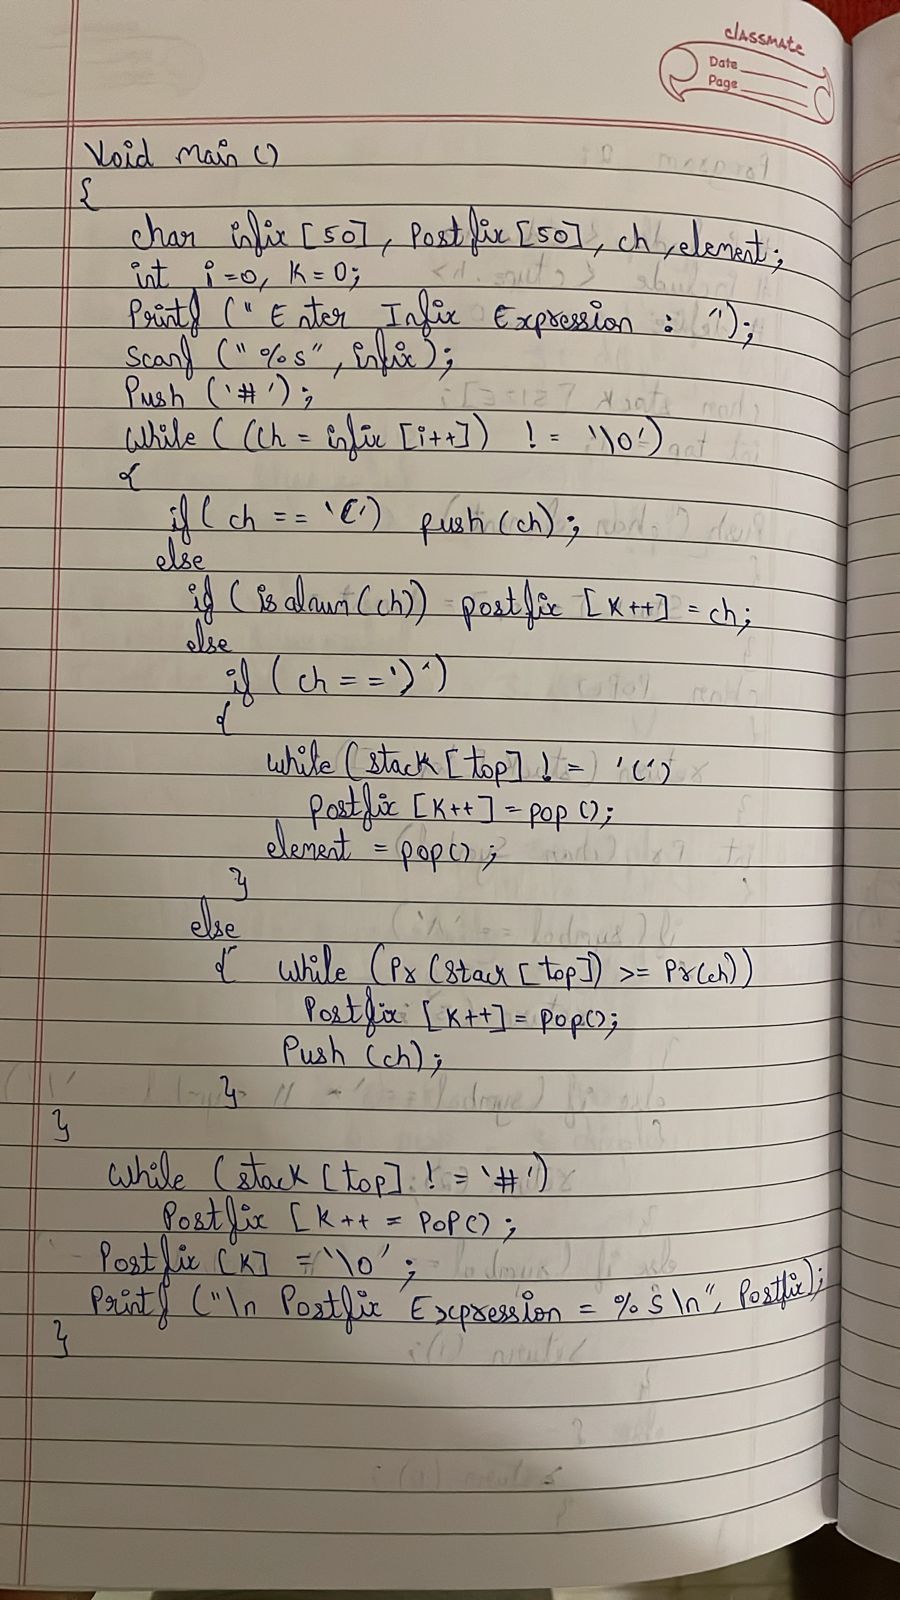 classmate
Date
Page
Void main ()
{
char infix [50], Postfix [50], ch, element;
int i=0, K=0;
Printf (" Enter Infix Expression : ");
Scanf (" %s", infix);
Push ('#');
While ( (ch = infix [i++]) != '\0')
{
if ( ch == '(') push (ch);
else
if ( is alnum (ch)) postfix [K++] = ch;
else
if ( ch == ')')
{
while (stack [top] != '(')
Postfix [K++] = pop ();
element = pop();
}
else
{ while (Pr (stack [top]) >= Pr(ch))
Postfix [K++] = pop();
Push (ch);
}
}
while (stack [top] != '#')
Postfix [K++ = POP();
Postfix [K] = '\0';
Printf ("\n Postfix Expression = %s \n", Postfix);
}